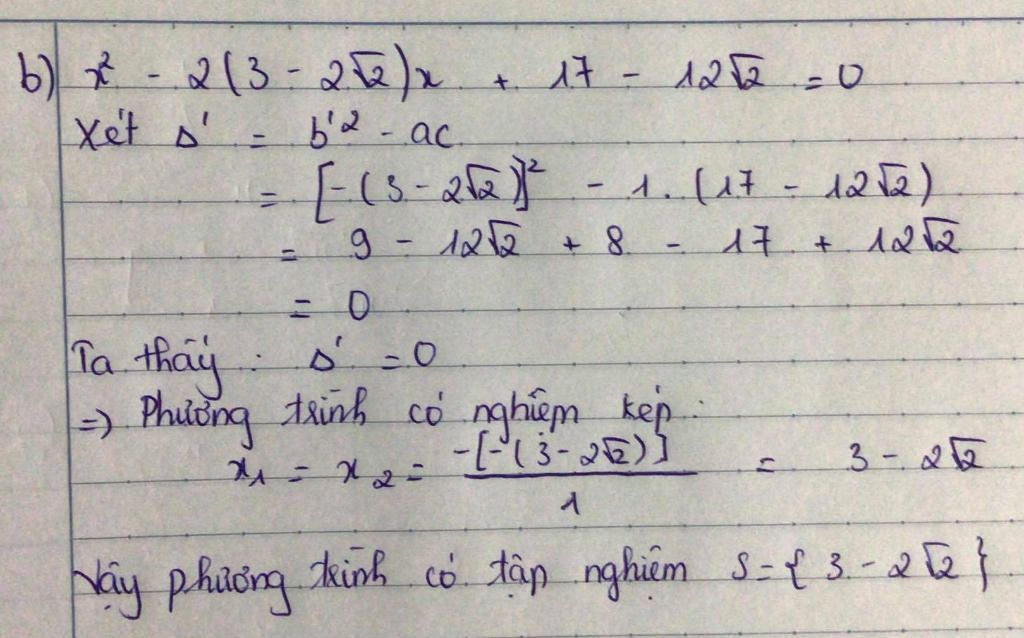 b) x² - 2(3 - 2√2)x + 17 - 12√2 = 0
Xét Δ' = b'² - ac
= [-(3 - 2√2)]² - 1.(17 - 12√2)
= 9 - 12√2 + 8 - 17 + 12√2
= 0
Ta thấy: Δ' = 0
=> Phương trình có nghiệm kép:
x₁ = x₂ = -[-(3 - 2√2)] / 1 = 3 - 2√2
Vậy phương trình có tập nghiệm S = { 3 - 2√2 }